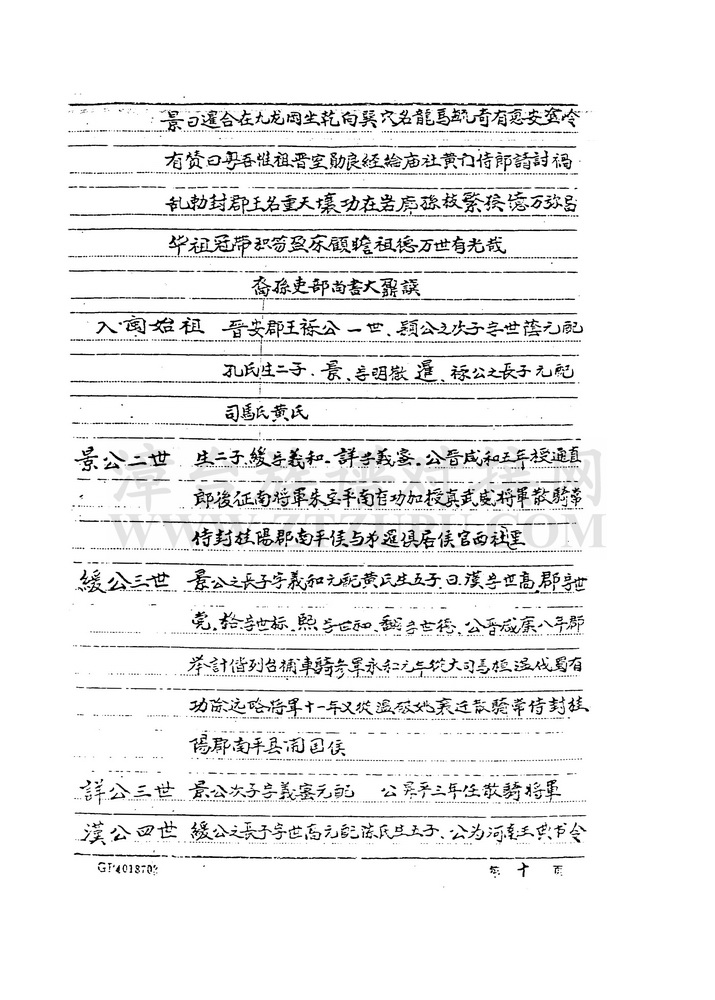 景曰暹合在九龙岡坐乾向巽穴名龍馬毓奇有悳安益冷
有赞曰粤吾惟祖晋室勋良经纶庙社黄门侍郎請討禍
乱勅封郡王名重天壤功在岩廊孫枝繁衍億万弥昌
华祖冠带积笏盈床顧瞻祖德万世有光哉
裔孫吏部尚書大鼐譔
入闽始祖 晉安郡王祿公 一世、穎公之次子字世蔭元配
孔氏生二子、景、字明徹 暹、祿公之長子元配
司馬氏黄氏
景公二世 生二子、緩字義和、詳字義密、公晋咸和五年授通直
郎後征南將軍朱 平南有功加授真武威將軍散騎常
侍封桂陽郡南平侯与弟暹俱居侯官西社里
緩公三世 景公之長子字義和元配黄氏生五子、曰、漢字世高、郡字世
党、拾字世标、熙字世和、翻字世德、公晋咸康八年郡
举計偕列台補車騎参軍永和元年從大司馬桓温伐蜀有
功除远略將軍十一年又從温破姚襄迁散騎常侍封桂
陽郡南平县開国侯
詳公三世 景公次子字義密元配 公昇平三年任散騎將軍
漢公四世 緩公之長子字世高元配陈氏生五子、公为河 王典书令
第 十 页
津台族谱对接网
WWW.ZTZUPU.COM